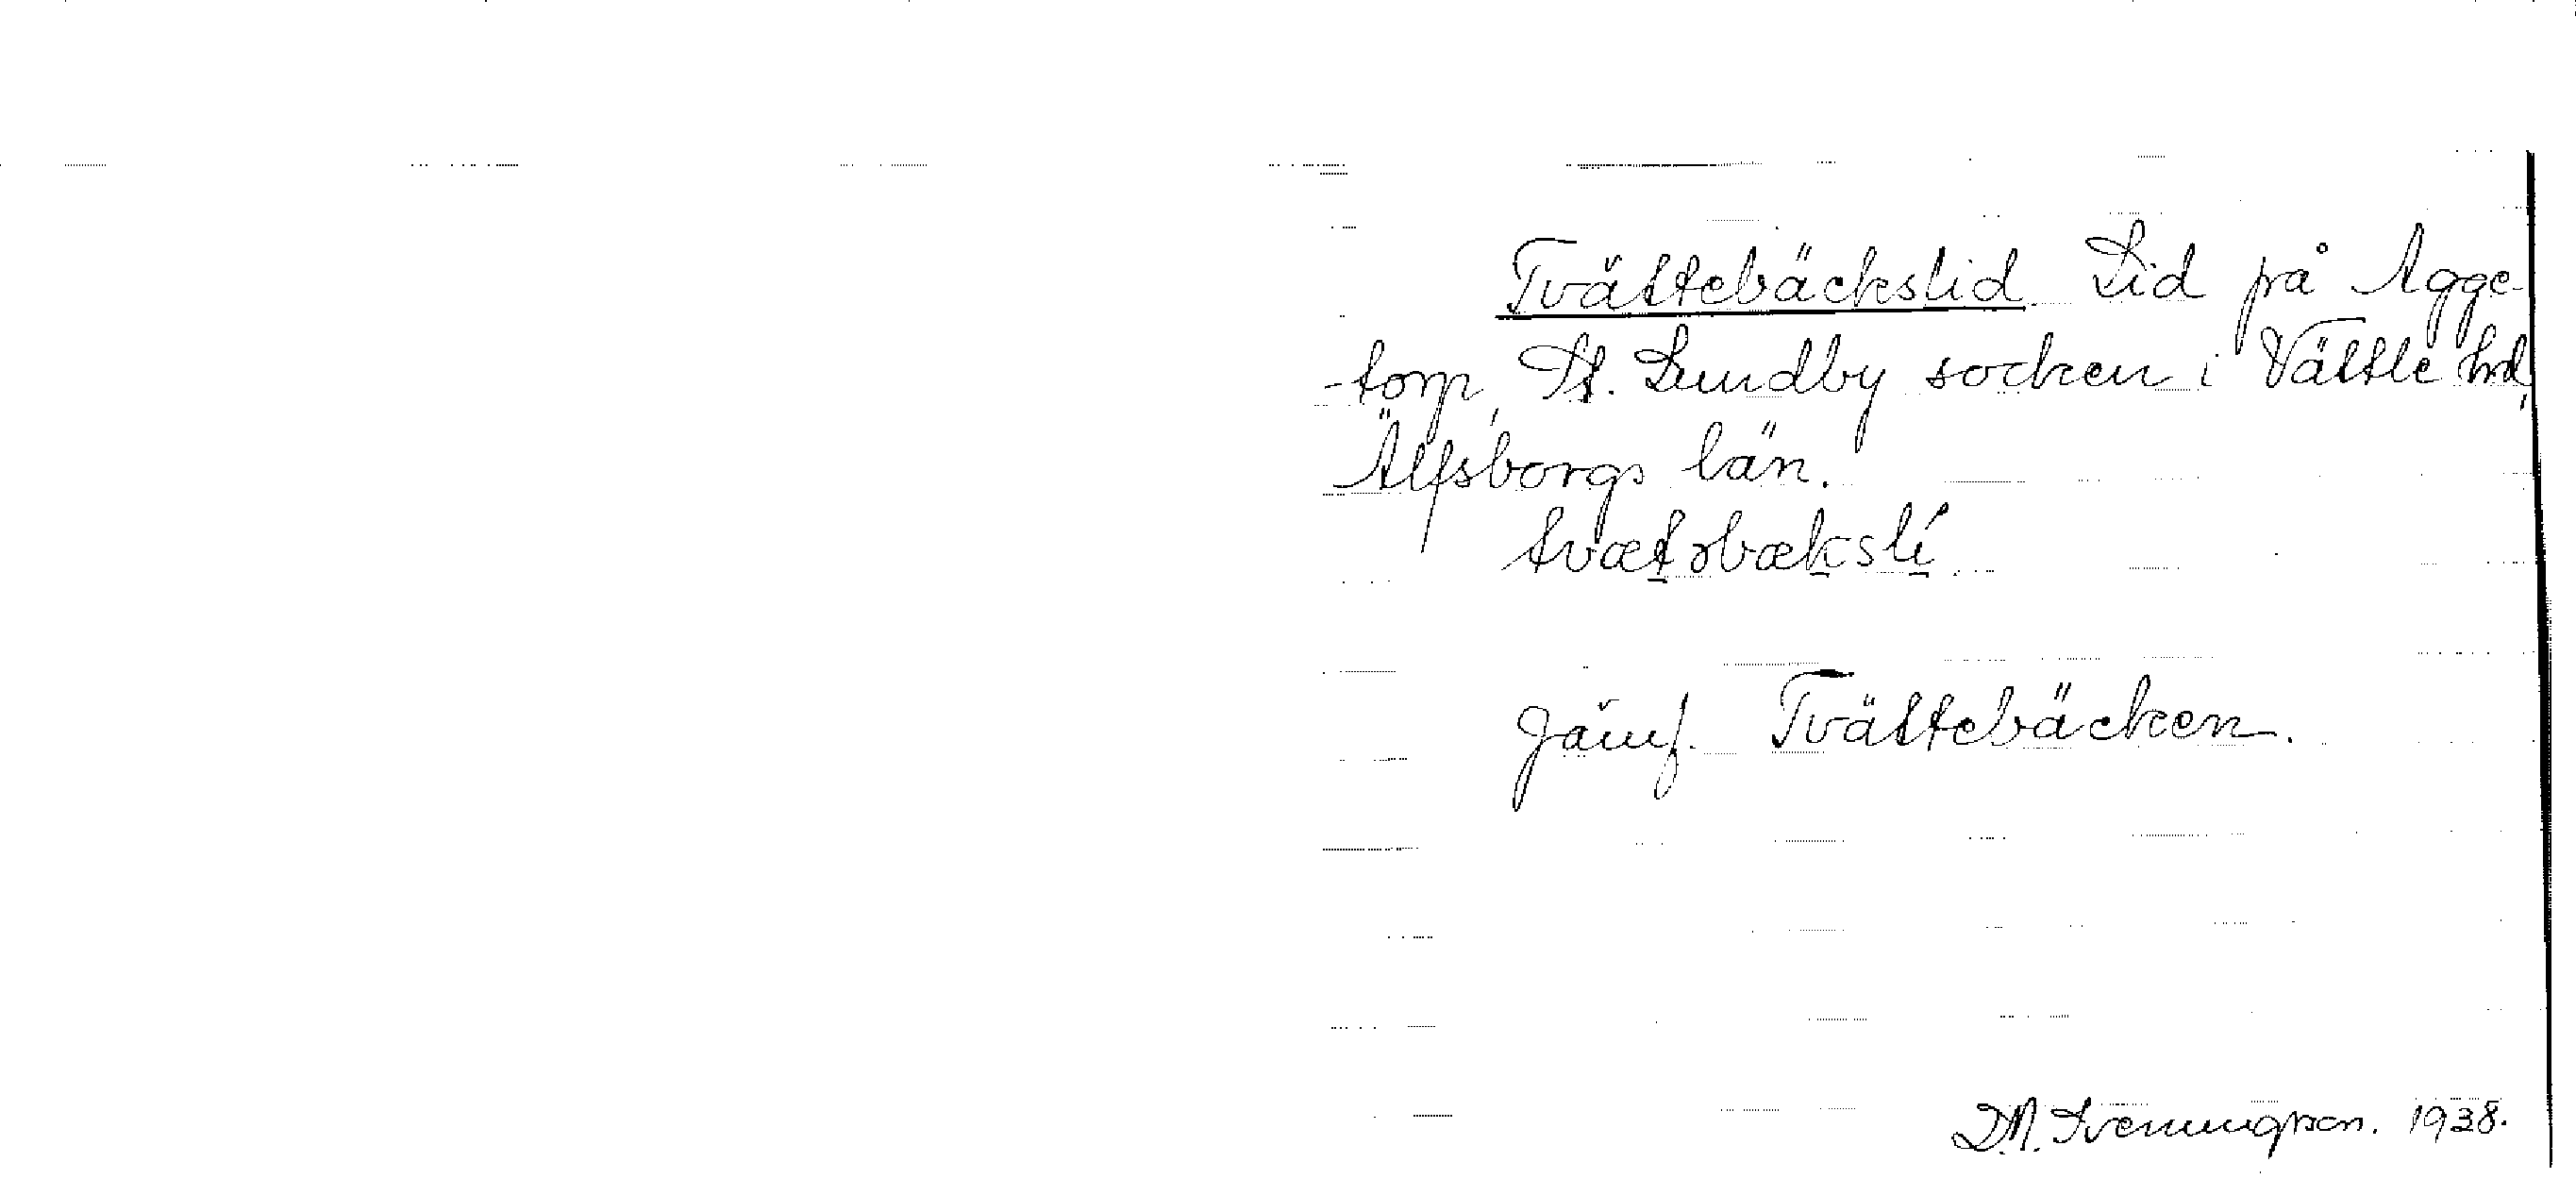 Tvättebäckslid. Lid på Agge-
-torp, St. Lundby socken i Vättle hd,
Älfsborgs län.
tvæt̲əbæk̲slí̲.
Jämf. Tvättebäcken.
D.N. Svenungsson. 1938.